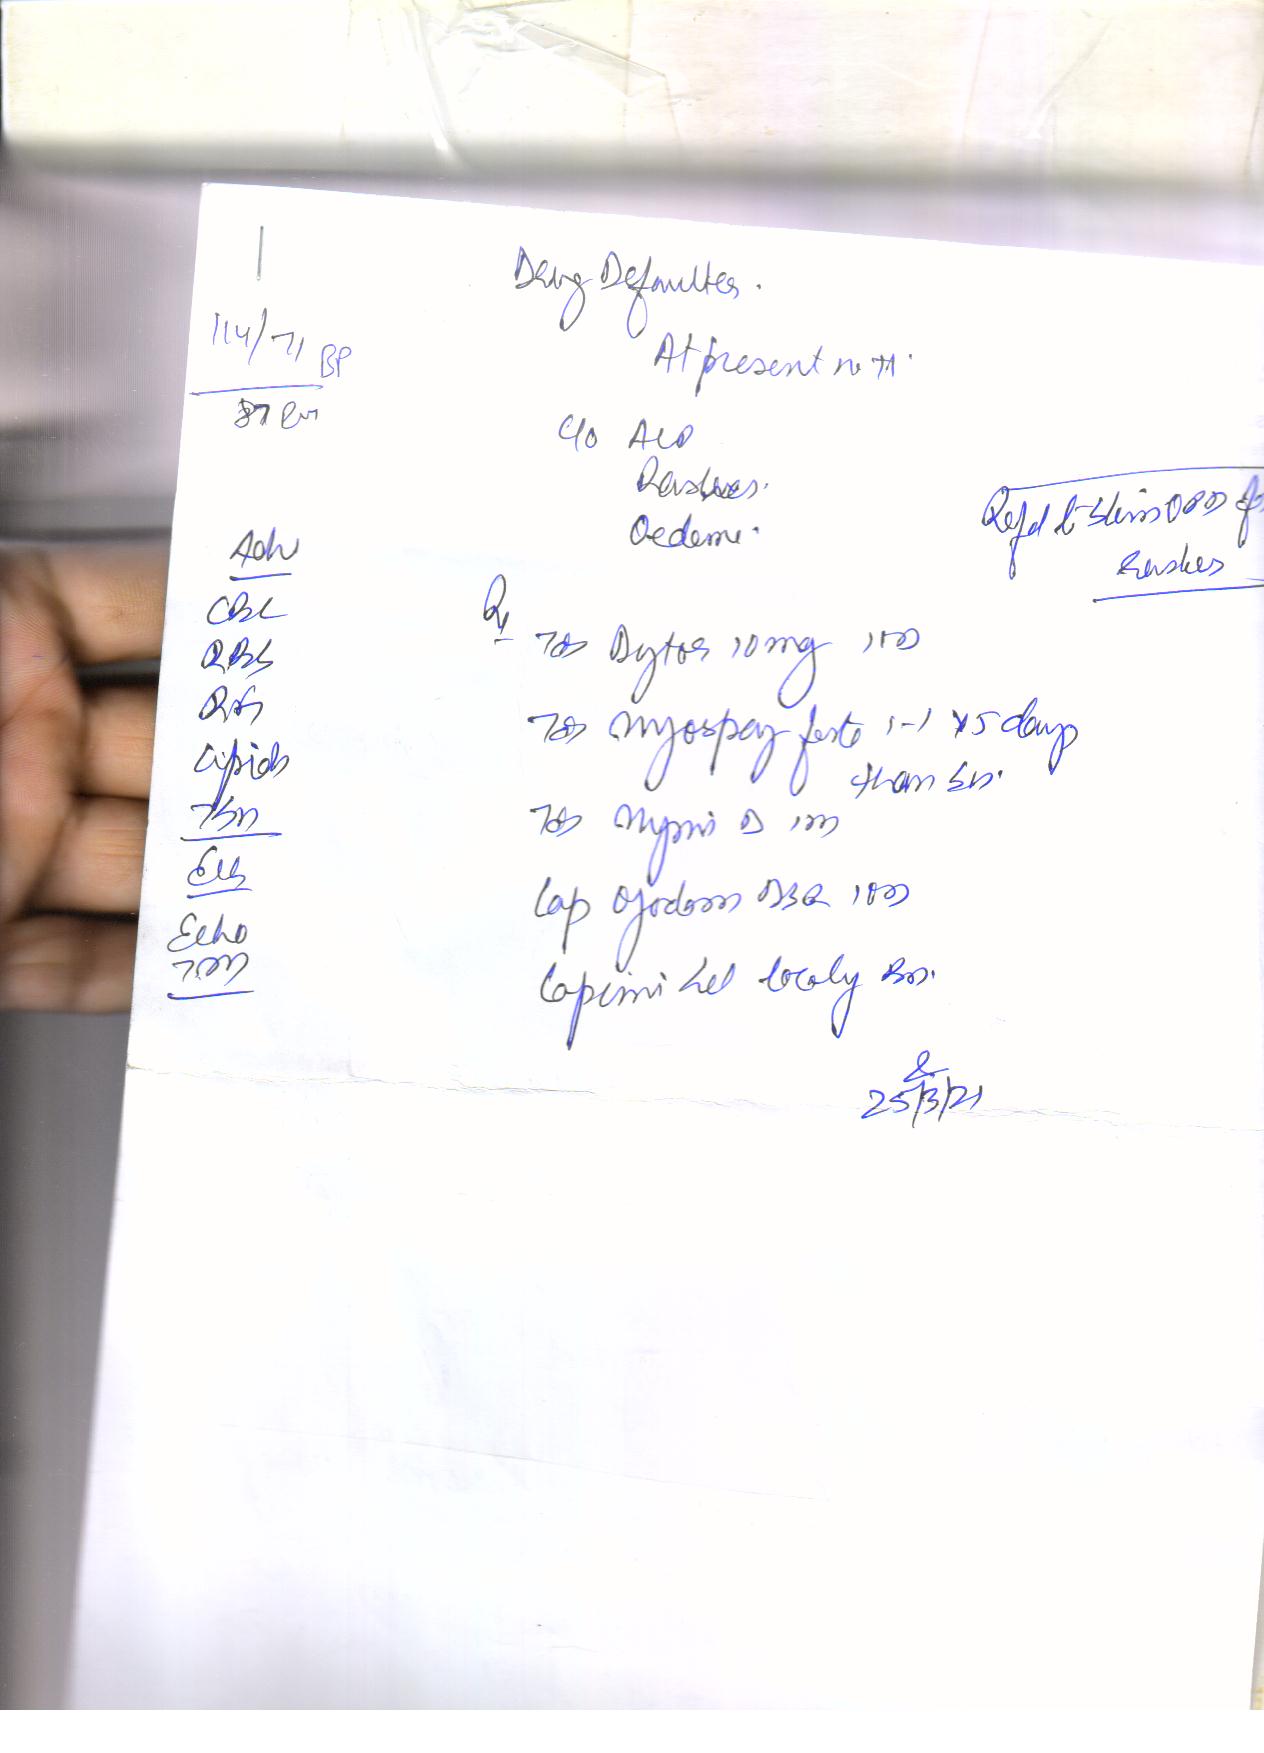 Drug Defaulter.
At present no
114/71 BP
87
C/O ACD
Rashes.
Oedema.
Refd to Skin OPD for
Rashes
Adv
CBC
RBS
RFT
Lipids
TSH
ECG
Echo
TMT
Rx
Tab Dytor 10mg 1OD
Tab Myospaz forte 1-1 x 5 days
than SOS.
Tab D
Cap DSR 1OD
gel localy BD.
25/3/21